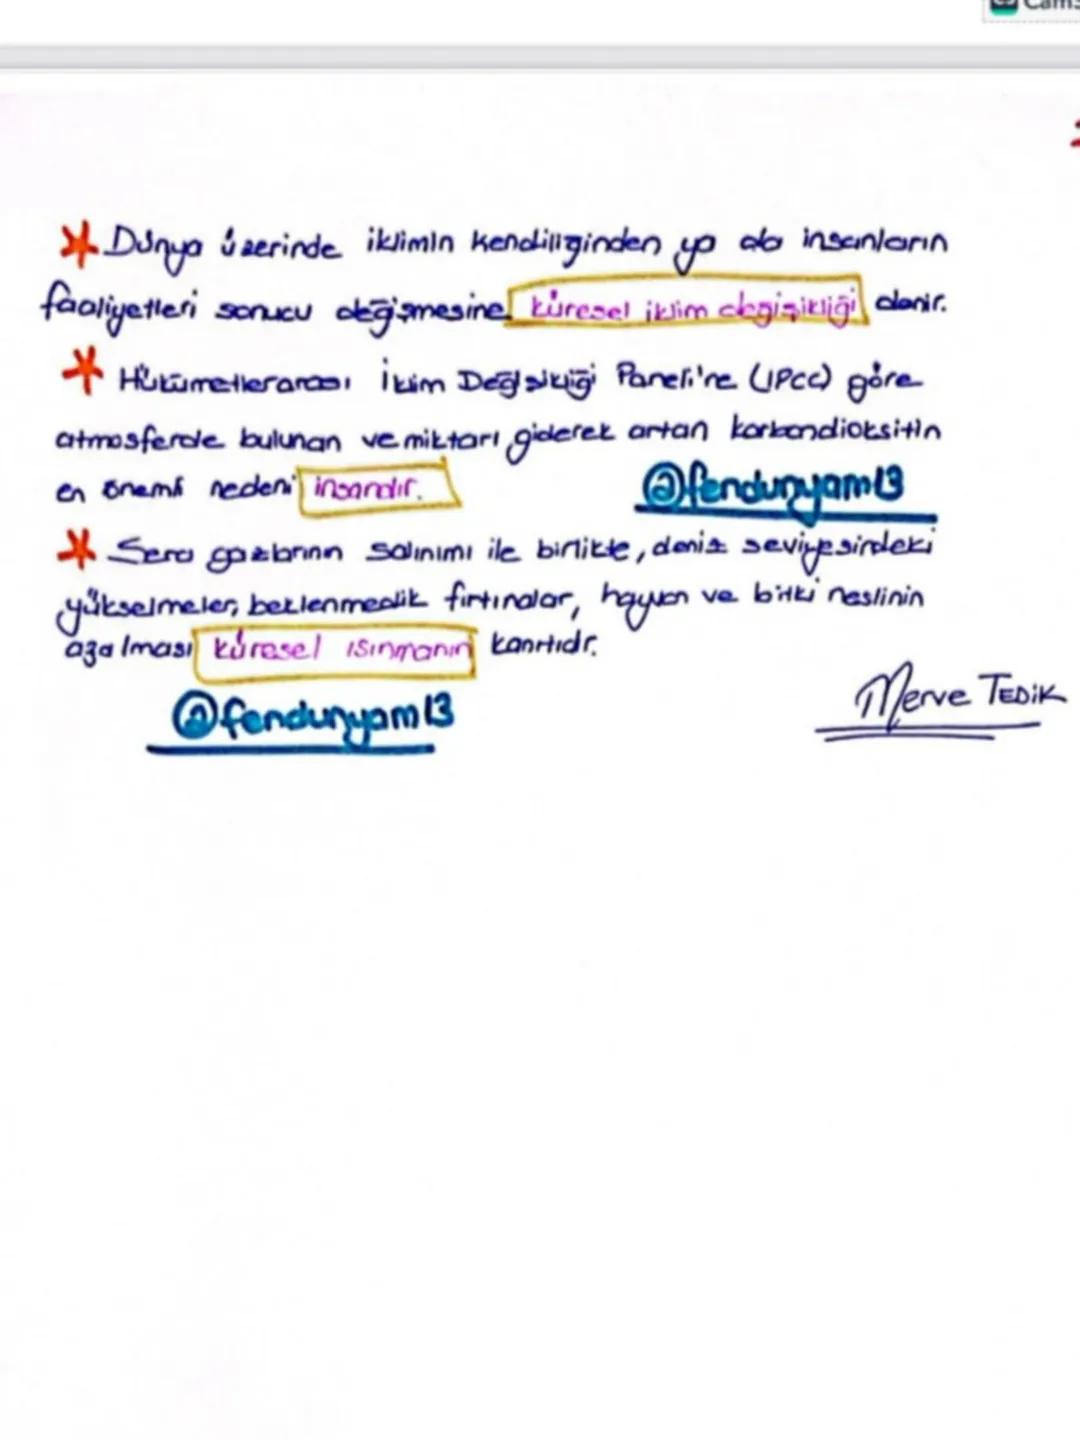 Cams
* Dünya üzerinde iklimin kendiliğinden ya da insanların
faaliyetleri sonucu değişmesine küresel iklim değişikliği denir.
* Hükümetlerarası İklim Değişikliği Paneli'ne (IPCC) göre
atmosferde bulunan ve miktarı giderek artan karbondioksitin
en önemli nedeni insandır.
@fendunyam13
* Sera gazlarının salınımı ile birlikte, deniz seviyesindeki
yükselmeler, beklenmedik fırtınalar, hayvan ve bitki neslinin
azalması küresel ısınmanın kanıtıdır.
@fendunyam13
Merve TEDİK